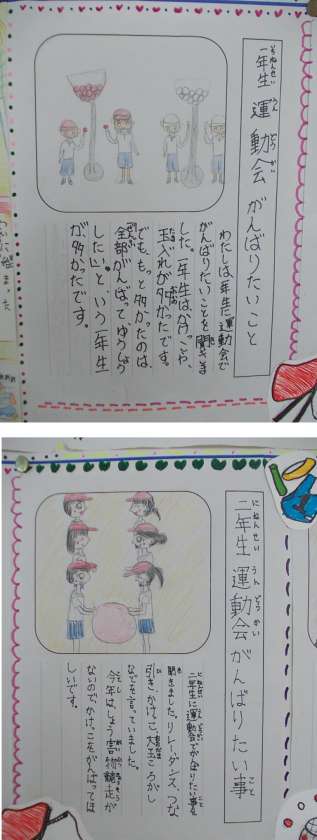 一年生 運動会 がんばりたいこと
わたしは、一年生に運動会で
がんばりたいことを聞きま
した。一年生は、かけっこや、
玉入れが多かったです。
でも、もっと多かったのは、
全部がんばって、ゆうしょう
したい。という一年生
が多かったです。
二年生 運動会 がんばりたい事
二年生に運動会でがんばりたい事を
聞きました。リレー、ダンス、つな
引き、かけっこ、大玉ころがし
などを言っていました。
今年は、しょう害物競走が
ないので、かけっこをがんばってほ
しいです。